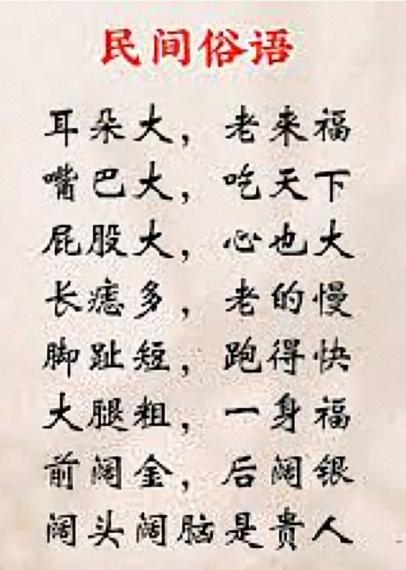 民间俗语
耳朵大，老来福
嘴巴大，吃天下
屁股大，心也大
长痣多，老的慢
脚趾短，跑得快
大腿粗，一身福
前阔金，后阔银
阔头阔脑是贵人